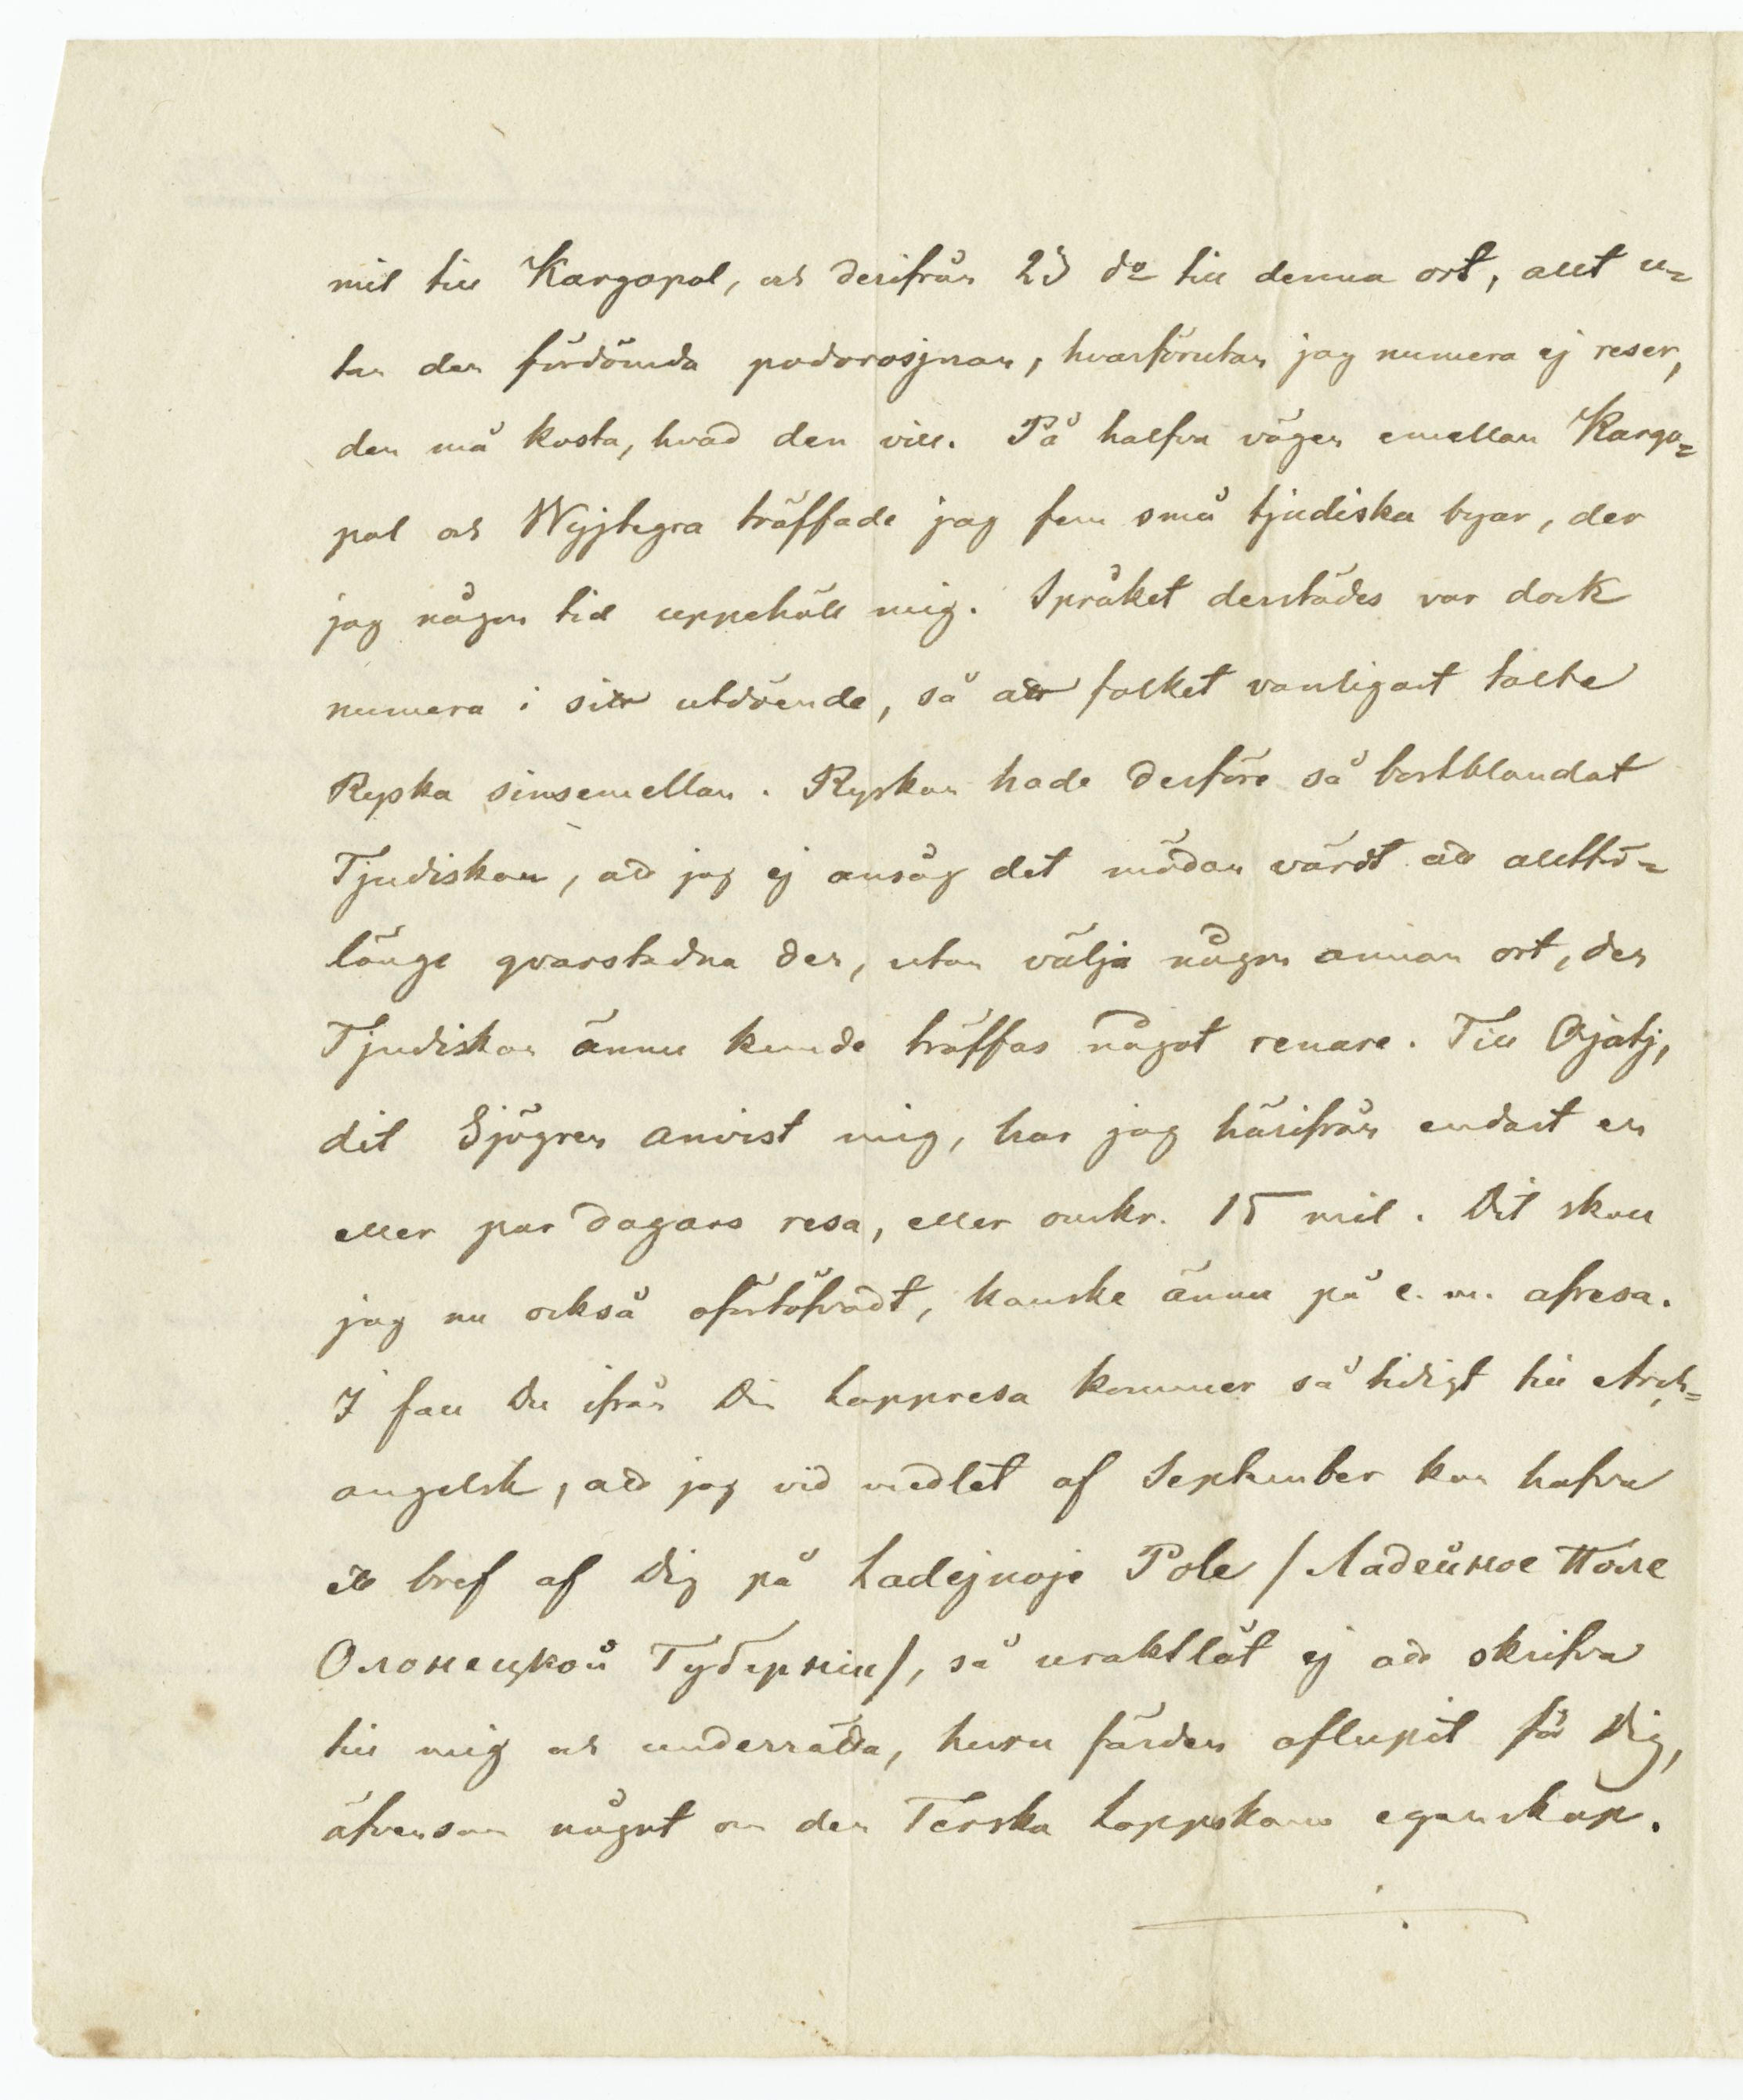 mil till Kargopol, och derifrån 23 do till denna ort, allt u=
tan den fördömda podorosjnan, hvarförutan jag numera ej reser,
den må kosta, hvad den vill. På halfva vägen emellan Kargo=
pol och Wyjtegra träffade jag fem små tjudiska byar, der
jag någon tid uppehöll mig. Språket derstädes var dock
numera i sitt utdöende, så att folket vanligast talte
Ryska sinsemellan. Ryskan hade derföre så bortblandat
Tjudiskan, att jag ej ansåg det mödan värdt att alltför=
länge qvarstadna der, utan välja någon annan ort, der
Tjudiskan ännu kunde träffas något renare. Till Ojatj,
dit Sjögren anvist mig, har jag härifrån endast en
eller par dagars resa, eller omkr. 15 mil. Dit skall
jag nu också oförtöfvadt, kanske ännu på e. m. afresa.
I fall Du ifrån Din Lappresa kommer så tidigt till Arch=
angelsk, att jag vid medlet af September kan hafva
ett bref af Dig på Ladejnoje Pole /Ладейное Поле
Олонецкой Губерніи/, så uraktlåt ej att skrifva
till mig och underrätta, huru färden aflupit för Dig,
äfvensom något om den Terska Lappskans egenskap.